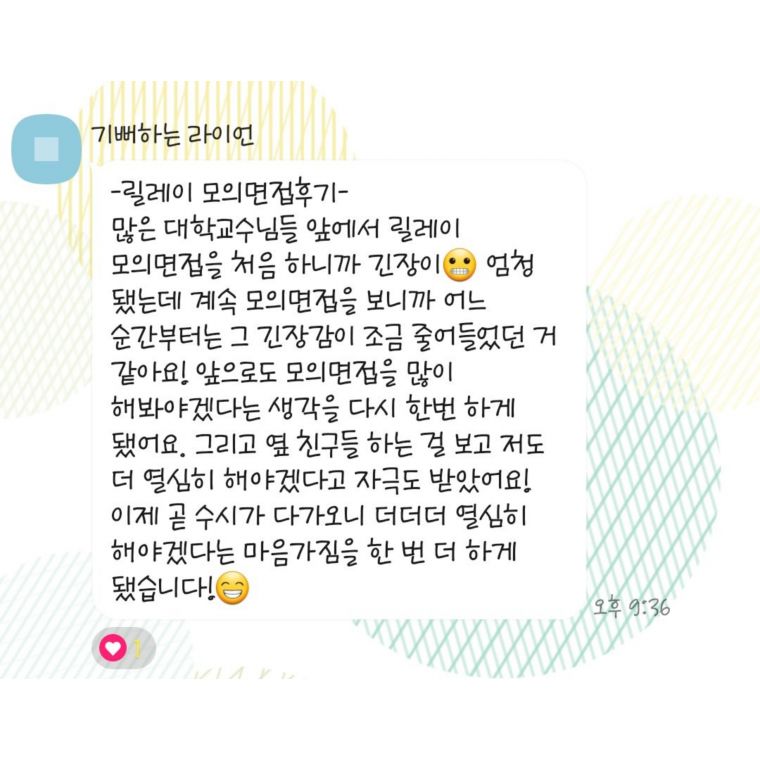 기뻐하는 라이언
-릴레이 모의면접후기-
많은 대학교수님들 앞에서 릴레이
모의면접을 처음 하니까 긴장이😬 엄청
됐는데 계속 모의면접을 보니까 어느
순간부터는 그 긴장감이 조금 줄어들었던 거
같아요! 앞으로도 모의면접을 많이
해봐야겠다는 생각을 다시 한번 하게
됐어요. 그리고 옆 친구들 하는 걸 보고 저도
더 열심히 해야겠다고 자극도 받았어요!
이제 곧 수시가 다가오니 더더더 열심히
해야겠다는 마음가짐을 한 번 더 하게
됐습니다!😁
오후 9:36
1